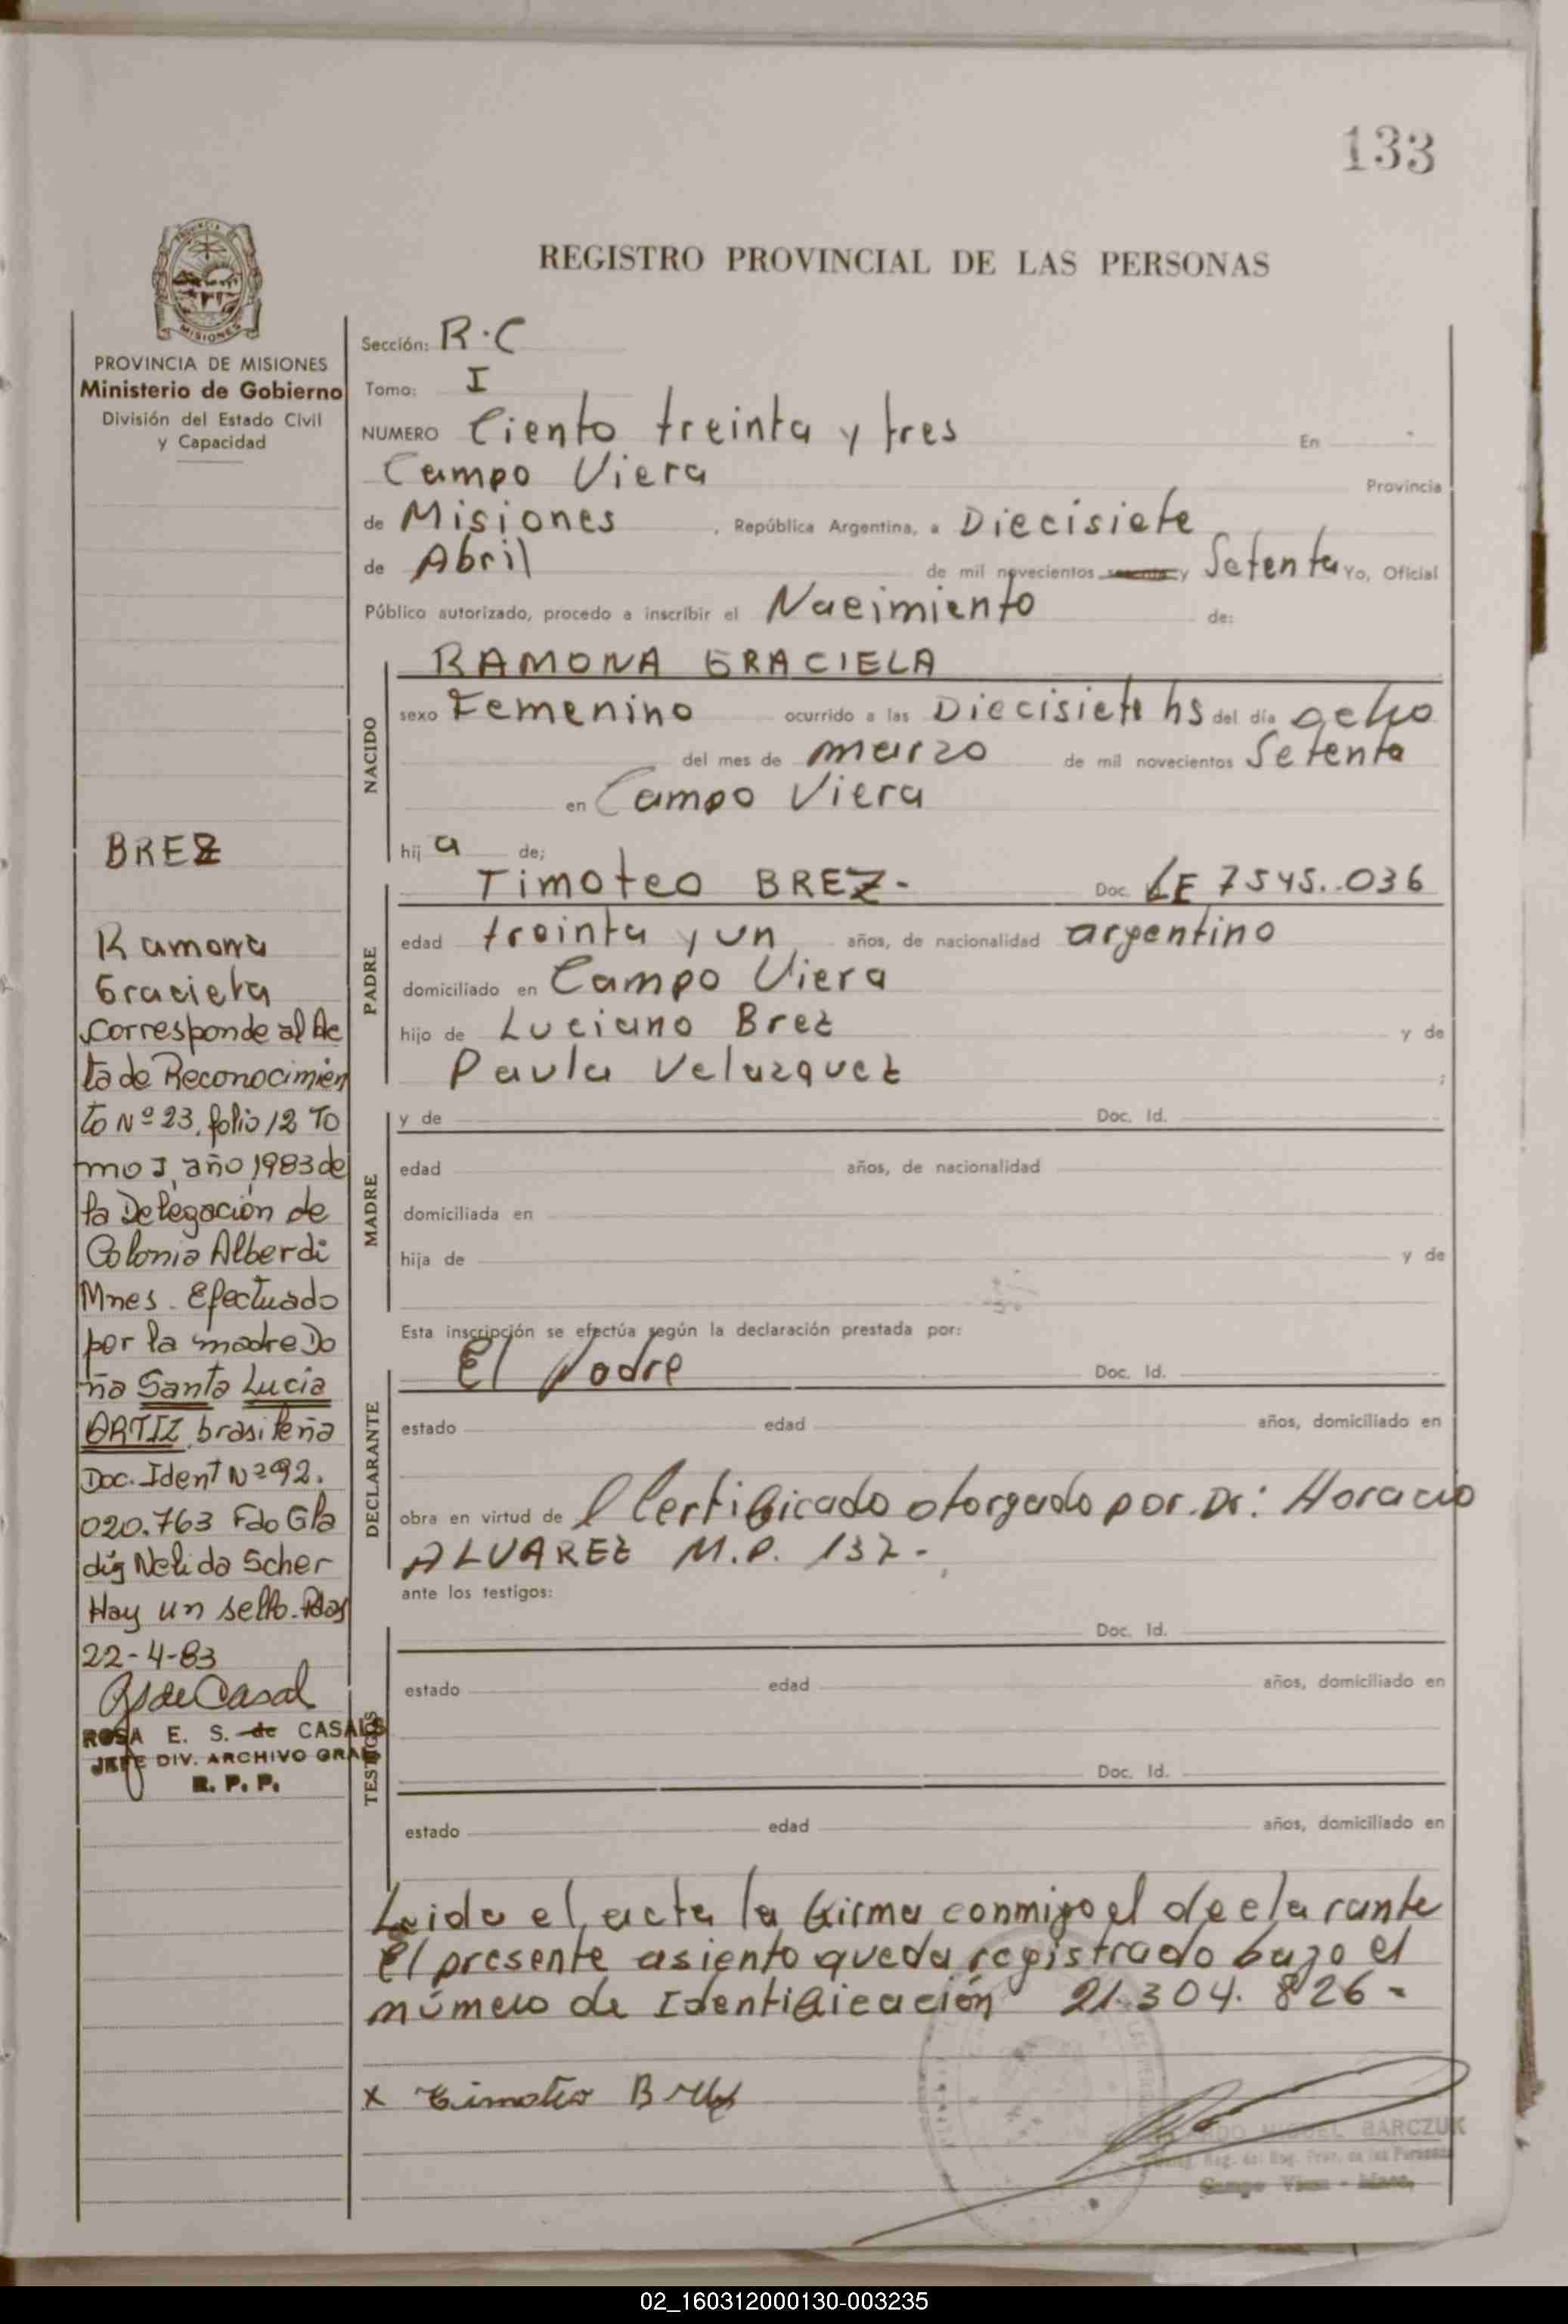 133
REGISTRO PROVINCIAL DE LAS PERSONAS
MISIONES
PROVINCIA DE MISIONES
Ministerio de Gobierno
División del Estado Civil
y Capacidad
BREZ
Ramona
Graciela
Corresponde al Ac
ta de Reconocimien
to Nº 23, folio 12 To
mo I, año 1983 de
la Delegación de
Colonia Alberdi
Mnes. Efectuado
por la madre Do
ña Santa Lucia
ORTIZ, brasileña
Doc. Ident Nº 92.
020.763 Fdo Gla
dis Nelida Scher
Hay un sello. Pdas
22-4-83
ROSA E. S. de CASALS
JEFE DIV. ARCHIVO GRAL
R. P. P.
Sección: R.C
Tomo: I
NUMERO Ciento treinta y tres En
Campo Viera Provincia
de Misiones, República Argentina, a Diecisiete
de Abril de mil novecientos y Setenta Yo, Oficial
Público autorizado, procedo a inscribir el Nacimiento de:
NACIDO
RAMONA GRACIELA
sexo Femenino ocurrido a las Diecisiete hs del día ocho
del mes de marzo de mil novecientos Setenta
en Campo Viera
hij a de;
PADRE
Timoteo BREZ- Doc. LE 7545..036
edad treinta y un años, de nacionalidad argentino
domiciliado en Campo Viera
hijo de Luciano Brez y de
Paula Velazquez ;
MADRE
y de Doc. Id.
edad años, de nacionalidad
domiciliada en
hija de y de
Esta inscripción se efectúa según la declaración prestada por:
DECLARANTE
El Padre Doc. Id.
estado edad años, domiciliado en
obra en virtud de l Certificado otorgado por Dr: Horacio
ALVAREZ M.P. 137-
ante los testigos:
TESTIGOS
Doc. Id.
estado edad años, domiciliado en
Doc. Id.
estado edad años, domiciliado en
Leida el acta la firma conmigo el declarante
El presente asiento queda registrado bajo el
número de Identificación 21.304.826-
x Timoteo Brez
MIGUEL BARCZUK
Campo Viera - Mnes.
02_160312000130-003235